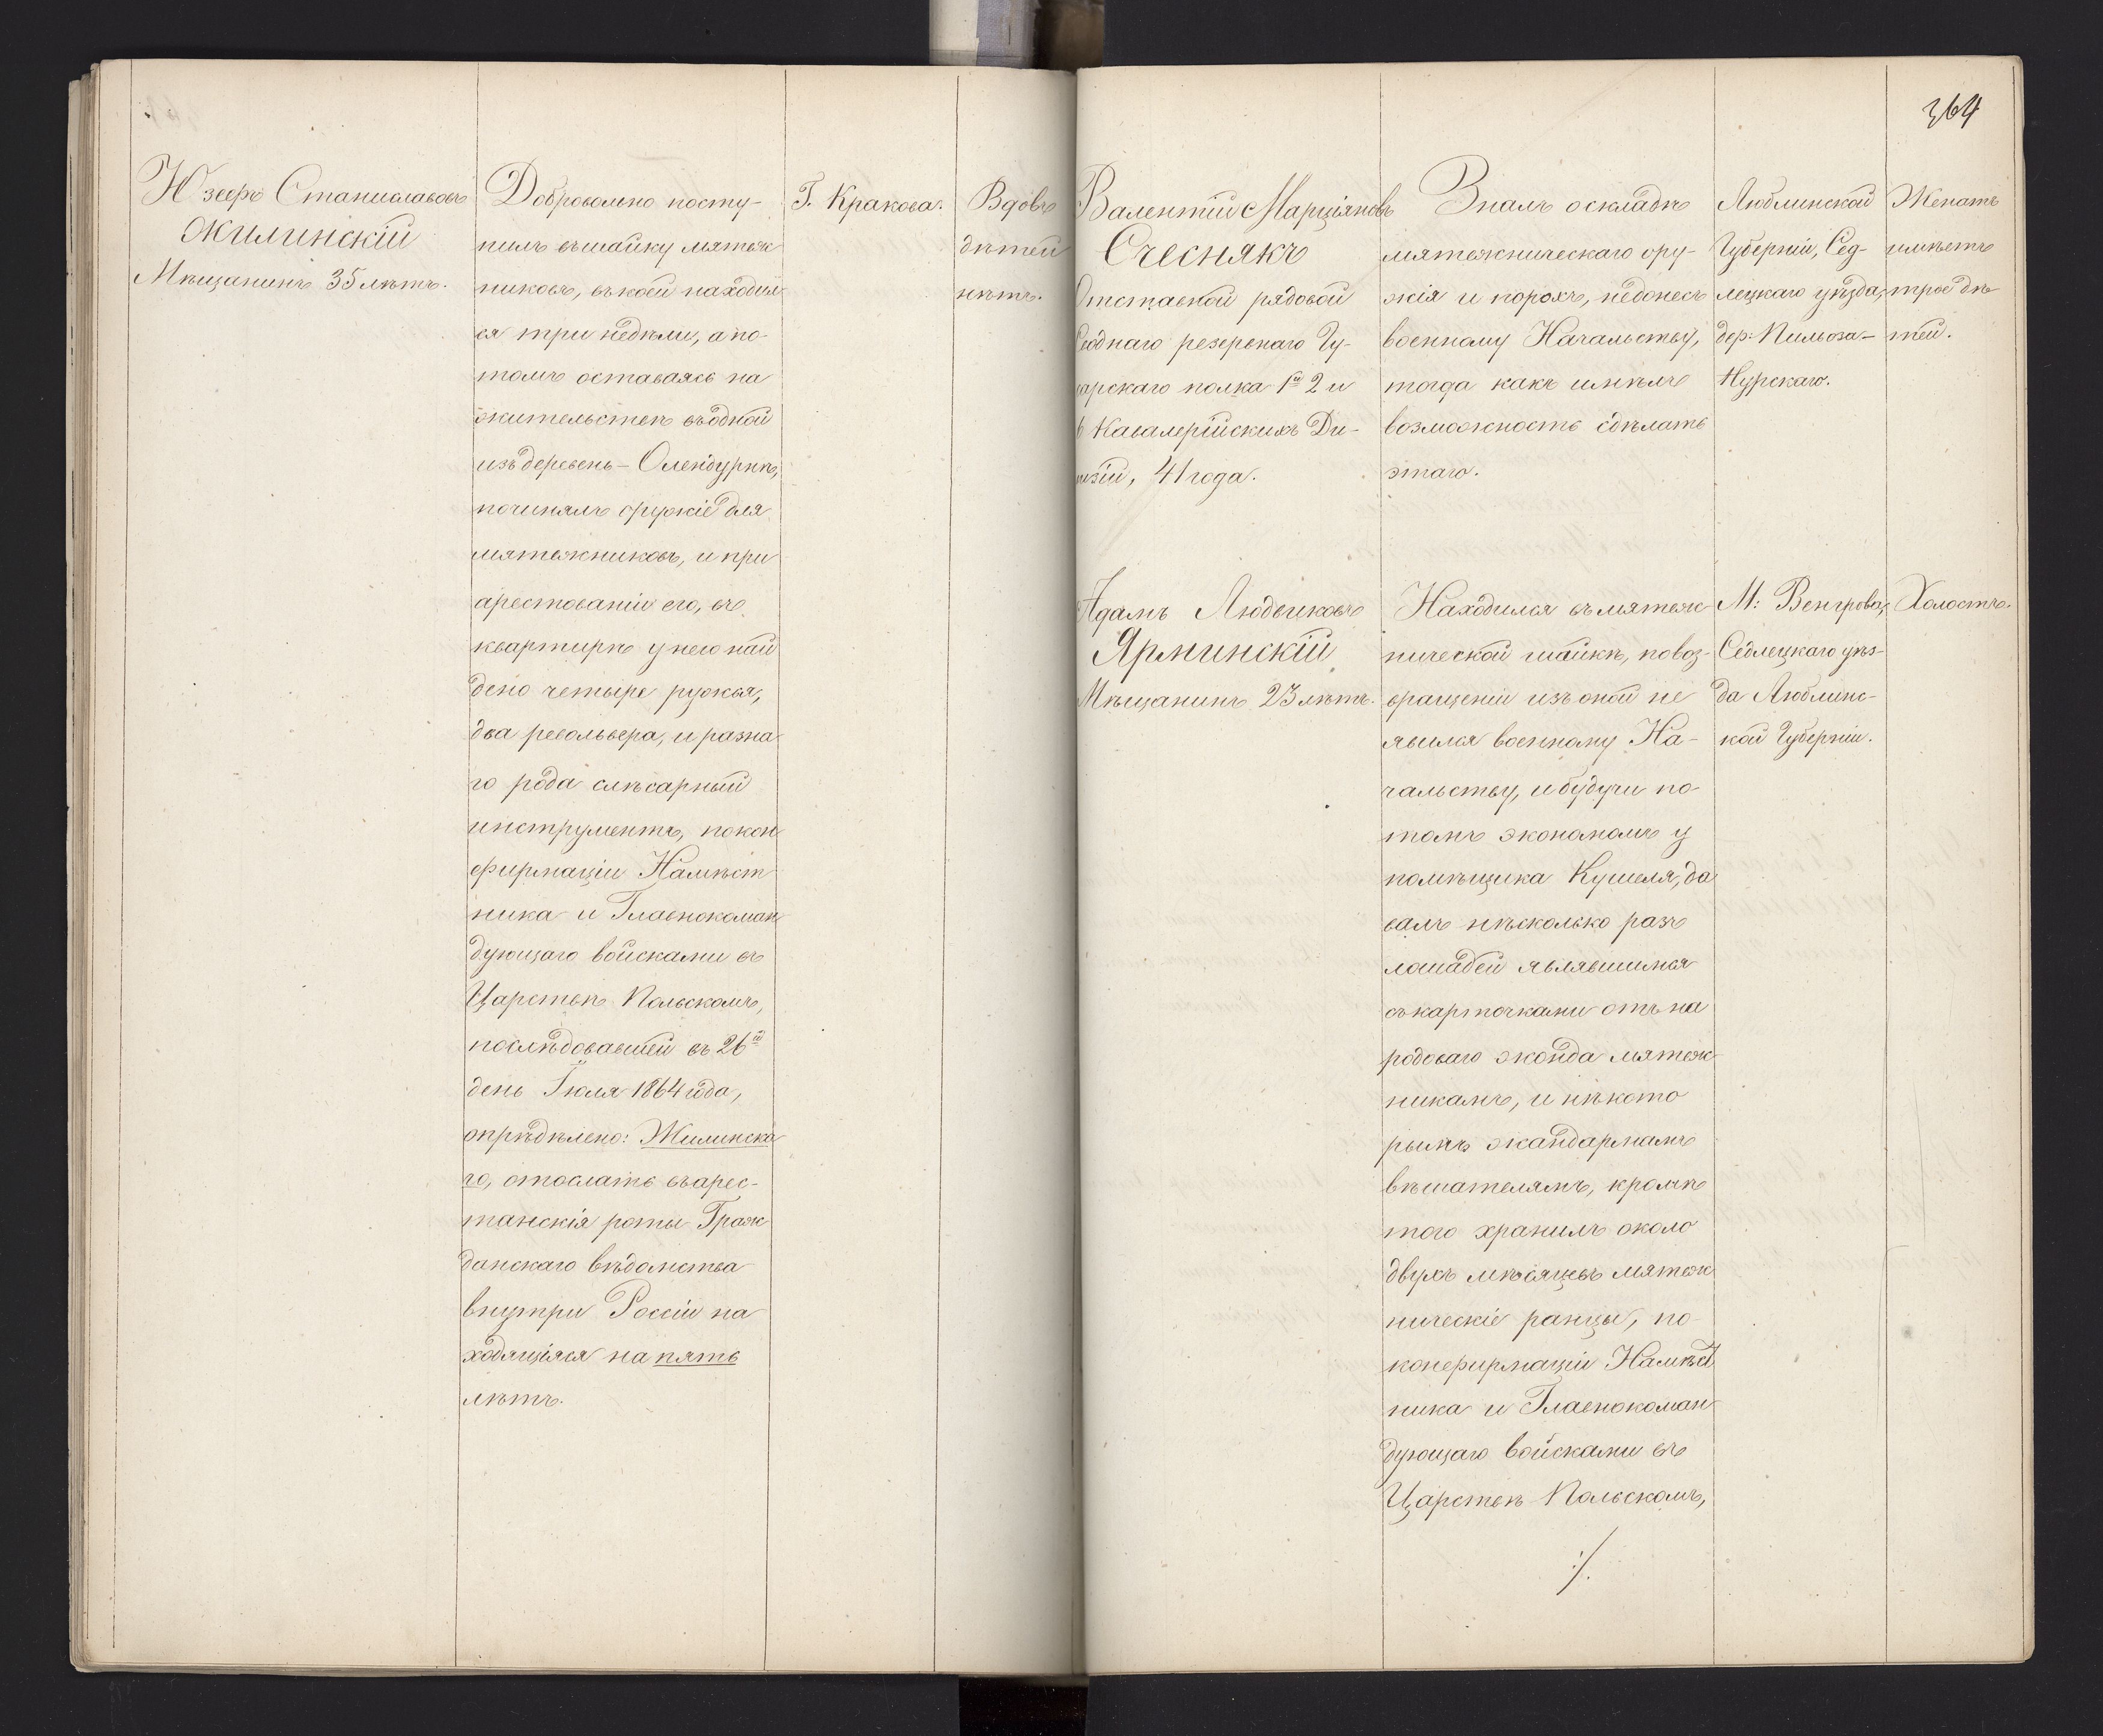 Юзефъ Станиславовъ
Жилинскій
Мѣщанинъ 35 лѣтъ.
Добровольно посту-
пилъ въ шайку мятеж
никовъ, въ коей находил
ся три недѣли, а по-
томъ оставаясь на
жительствѣ въ одной
изъ деревень – Олендуркѣ,
починялъ оружіе для
мятежниковъ, и при
арестованіи его, въ
квартирѣ у него най
дено четыре ружья,
два револьвера, и разна
го рода слѣсарный
инструментъ, по кон
фирмаціи Намѣст
ника и Главнокоман
дующаго войсками въ
Царствѣ Польскомъ,
послѣдовавшей въ 26й
день Іюля 1864 года,
опредѣлено: Жилинска
го, отослать въ арес-
танскія роты Граж
данскаго вѣдомства
внутри Россіи на
ходящіяся на пять
лѣтъ.
Г. Кракова.
Вдовъ
дѣтей
нѣтъ.
364
Валентій Марціяновъ
Счеснякъ
Отставной рядовой
Своднаго резервнаго Гу-
сарскаго полка 1й 2 и
6 Кавалерійскихъ Ди-
визій, 41 года.
Зналъ о складѣ
мятежническаго ору-
жія и порохъ, недонесъ
военному Начальству,
тогда какъ имѣлъ
возможность сдѣлать
этаго.
Люблинской
Губерніи, Сед-
лецкаго уѣзда,
дер: Пильоза-
Нурскаго.
Женатъ
имѣетъ
трое дѣ
тей.
Адамъ Людвиковъ
Ярминскій
Мѣщанинъ 23 лѣтъ.
Находился въ мятеж
нической шайкѣ, по воз-
вращеніи изъ оной не
явился военному На-
чальству, и будучи по-
томъ экономомъ у
помѣщика Кушеля, да
валъ нѣсколько разъ
лошадей являвшимся
съ карточками отъ на
родоваго жонда мятеж
никамъ, и нѣкото
рымъ жандармамъ
вѣшателямъ, кромѣ
того хранилъ около
двухъ мѣсяцевъ мятеж
ническіе ранцы, по
конфирмаціи Намѣст
ника и Главнокоман
дующаго войсками въ
Царствѣ Польскомъ,
М: Венгрова,
Седлецкаго уѣз-
да Люблинс-
кой Губерніи.
Холостъ.
·/.